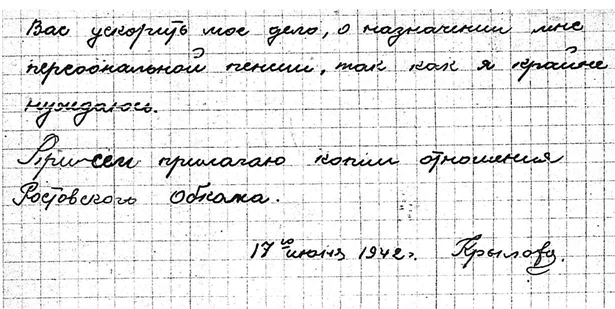 Вас ускорить мое дело, о назначении мне
персональной пенсии, так как я крайне
нуждаюсь.
При сем прилагаю копии отношения
Ростовского Обкома.
17го июня 1942 г. Крылова.